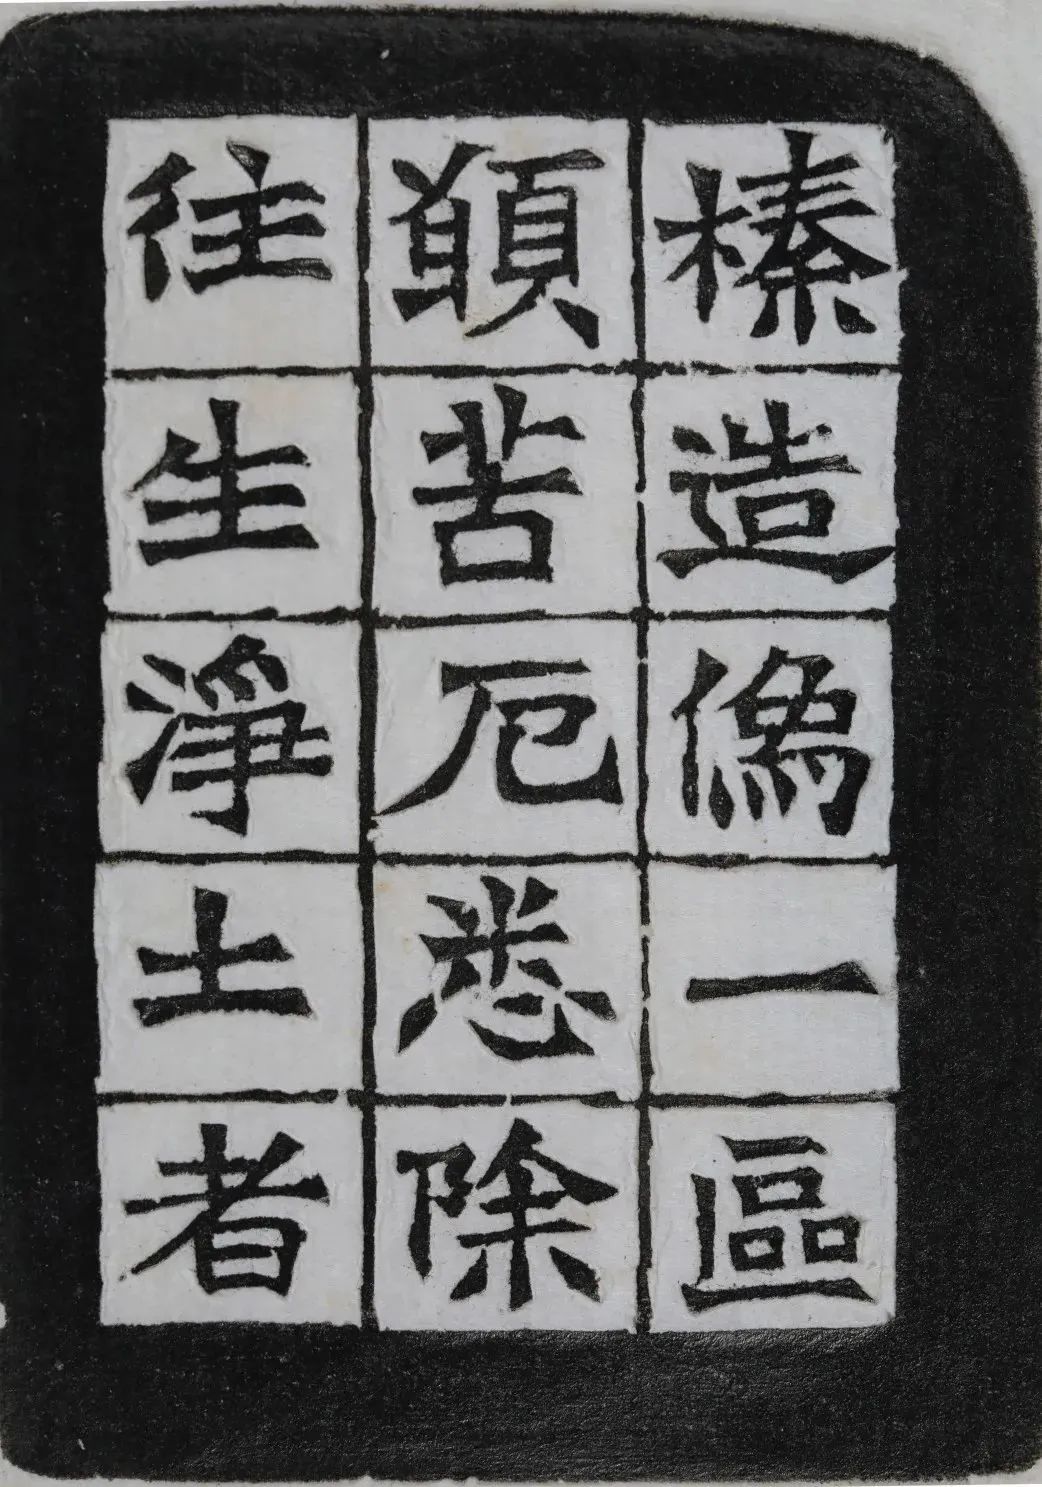 榛造像一區
願苦厄悉除
往生淨土者